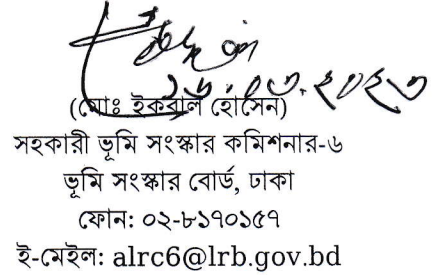 ১৬.০৩.২০২৩
(মোঃ ইকবাল হোসেন)
সহকারী ভূমি সংস্কার কমিশনার-৬
ভূমি সংস্কার বোর্ড, ঢাকা
ফোন: ০২-৮১৭০১৫৭
ই-মেইল: alrc6@lrb.gov.bd